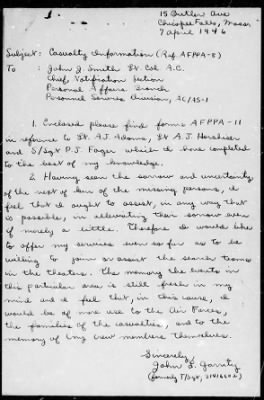 15 Butler Ave
Chicopee Falls, Mass
7 April 1946
Subject: Casualty Information (Ref. AFPPA-8)
To : John J Smith Lt Col A.C.
Chief, Notification Section
Personal Affairs Branch
Personnel Services Division, AC/AS-1
1. Enclosed please find forms AFPPA-11
in reference to Lt. A.J. Adams, Lt A.J.
and S/Sgt P.J. Fager which I have completed
to the best of my knowledge.
2. Having seen the sorrow and uncertainty
of the next of kin of the missing persons, I
feel that I ought to assist, in any way that
is possible, in alleviating their sorrow even
if merely a little. Therefore I would like
to offer my services even so far as to be
willing to join or assist the search teams
in the theaters. The memory the events in
this particular area is still fresh in my
mind and I feel that, in this cause, I
would be of more use to the Air Forces,
the families of the casualties, and to the
memory of my crew members themselves.
Sincerely,
John J. Garrity
(formerly T/Sgt,